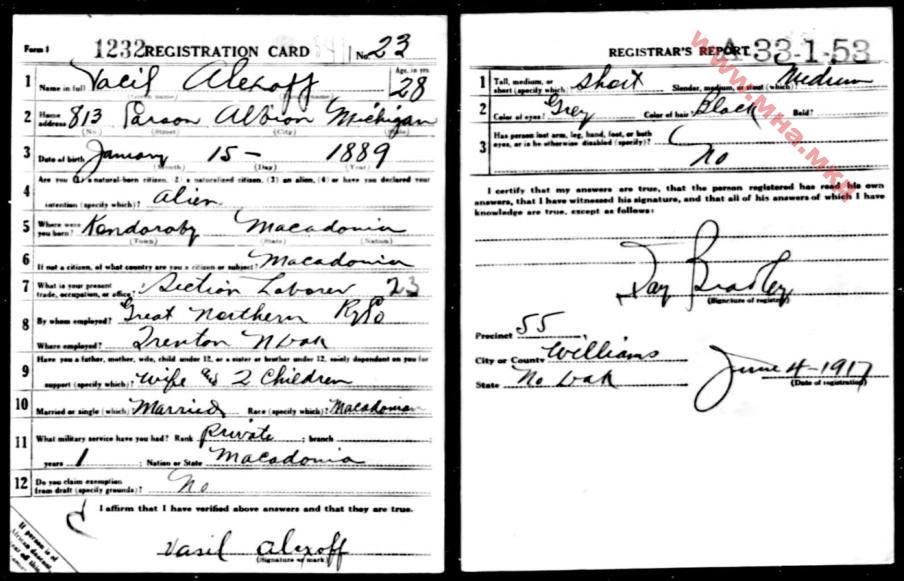 Form 1 1232 REGISTRATION CARD No. 23
1 Name in full Vacil Alexoff Age, in yrs. 28
(Given name) (Family name)
2 Home address 813 Parson Albion Michigan
(No.) (Street) (City) (State)
3 Date of birth January 15- 1889
(Month) (Day) (Year)
4 Are you (1) a natural-born citizen, (2) a naturalized citizen, (3) an alien, (4) or have you declared your
intention (specify which)? Alien
5 Where were you born? Kondoraby Macadonia
(Town) (State) (Nation)
6 If not a citizen, of what country are you a citizen or subject? Macadonia
7 What is your present trade, occupation, or office? Section Laborer 23
8 By whom employed? Great Northern Ry Co
Where employed? Trenton N Dak
9 Have you a father, mother, wife, child under 12, or a sister or brother under 12, solely dependent on you for
support (specify which)? Wife & 2 Children
10 Married or single (which) Married Race (specify which)? Macadonian
11 What military service have you had? Rank Private ; branch
years 1 ; Nation or State Macadonia
12 Do you claim exemption from draft (specify grounds)? No
I affirm that I have verified above answers and that they are true.
Vasil Alexoff
(Signature or mark)
If person is of African descent, tear off this
REGISTRAR'S REPORT A 33-1-53
1 Tall, medium, or short (specify which) Short Slender, medium, or stout (which)? Medium
2 Color of eyes? Grey Color of hair? Black Bald?
3 Has person lost arm, leg, hand, foot, or both
eyes, or is he otherwise disabled (specify)?
No
I certify that my answers are true, that the person registered has read his own
answers, that I have witnessed his signature, and that all of his answers of which I have
knowledge are true, except as follows:
Bradley
(Signature of registrar)
Precinct 55
City or County Williams
State No Dak June 4-1917
(Date of registration)
www.Mha.Mk